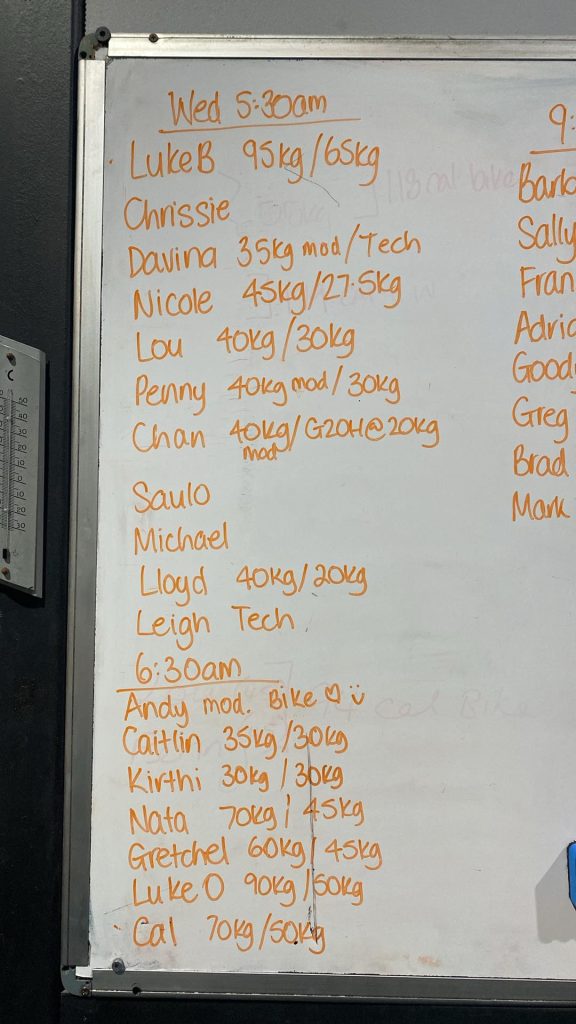 Wed 5:30am
Luke B 95kg/65kg
Chrissie
Davina 35kg mod/Tech
Nicole 45kg/27.5kg
Lou 40kg/30kg
Penny 40kg mod/30kg
Chan 40kg/G2OH@20kg
mod
Saulo
Michael
Lloyd 40kg/20kg
Leigh Tech
6:30am
Andy mod. Bike ♡ ü
Caitlin 35kg/30kg
Kirthi 30kg/30kg
Nata 70kg/45kg
Gretchel 60kg/45kg
Luke O 90kg/50kg
Cal 70kg/50kg
9:
Barb
Sally
Fran
Adric
Goody
Greg
Brad
Mark